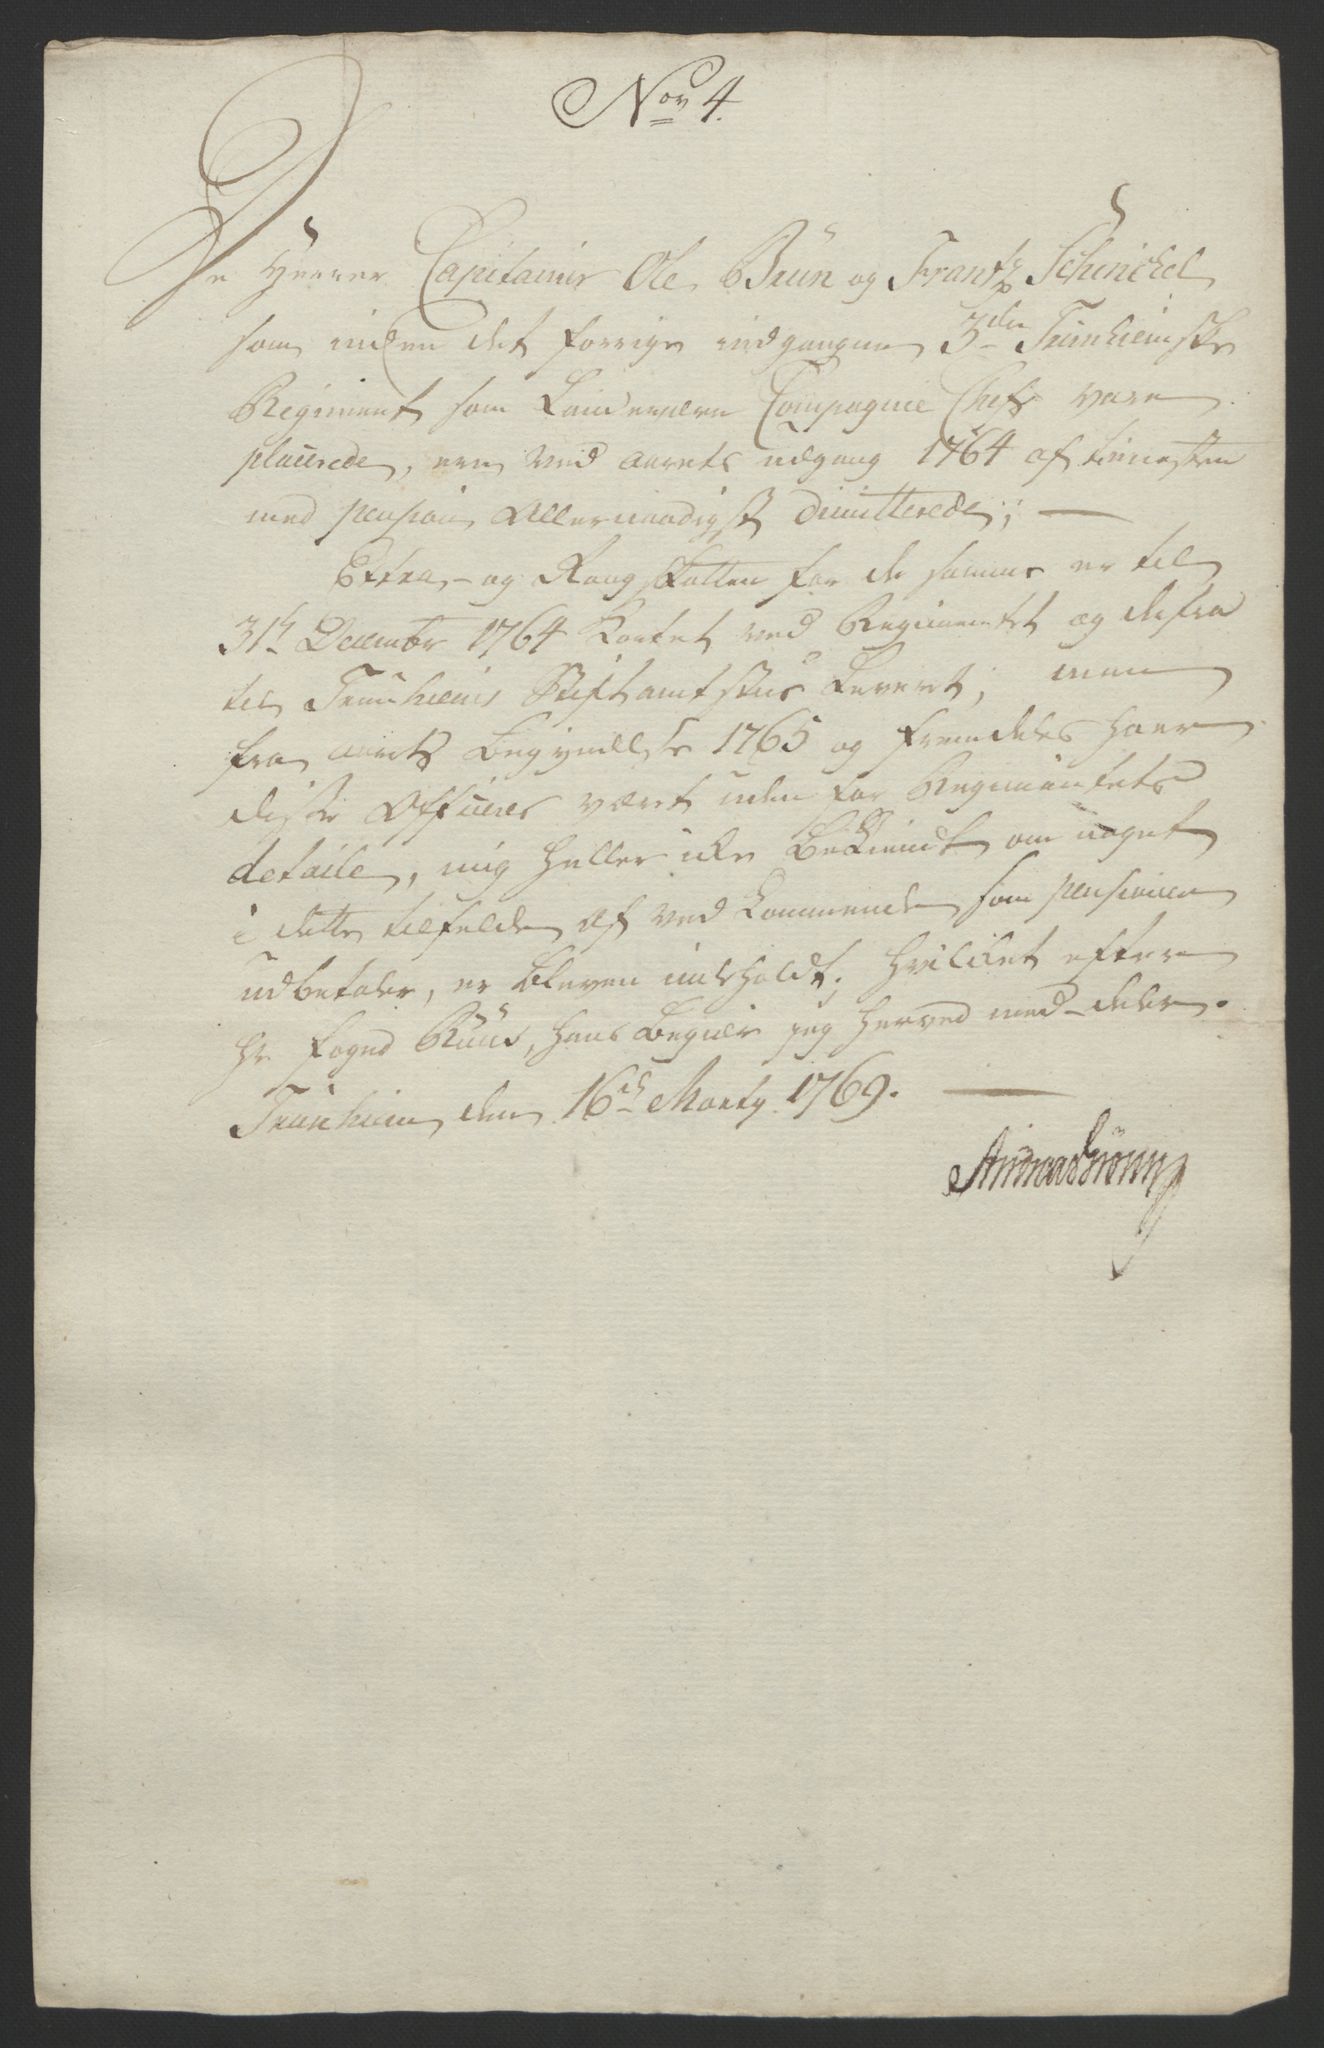 Nov 4.
De Herrer Capitainer Ole Brün og Frantz Schinckel
som inden det forrige indgangne 3die Trünhiemske
Regiment som Landeværn Compagnie Chefs vare
placerede, ere ved aarets udgang 1764 af tienesten
med pension Allernaadigst dimitterede; —
Extra- og Rang skatten for de samme er til
31t Decembr 1764 kortet ved Regimentet og derfra
til Trünhiems Stiftamtstue leveret; men
fra aarets Begyndelse 1765 og fremdeles haver
disse Officerer været uden for Regimentets
detaile, mig heller icke Bekiendt om noget
i dette tilfelde af vedkommende som pensionen
udbetaler, er bleven indeholdt; hvilket efter
Hr Foged Rüüs, hans Begiær jeg herved med-deeler.
Trünhiem den 16de Marty 1769. —